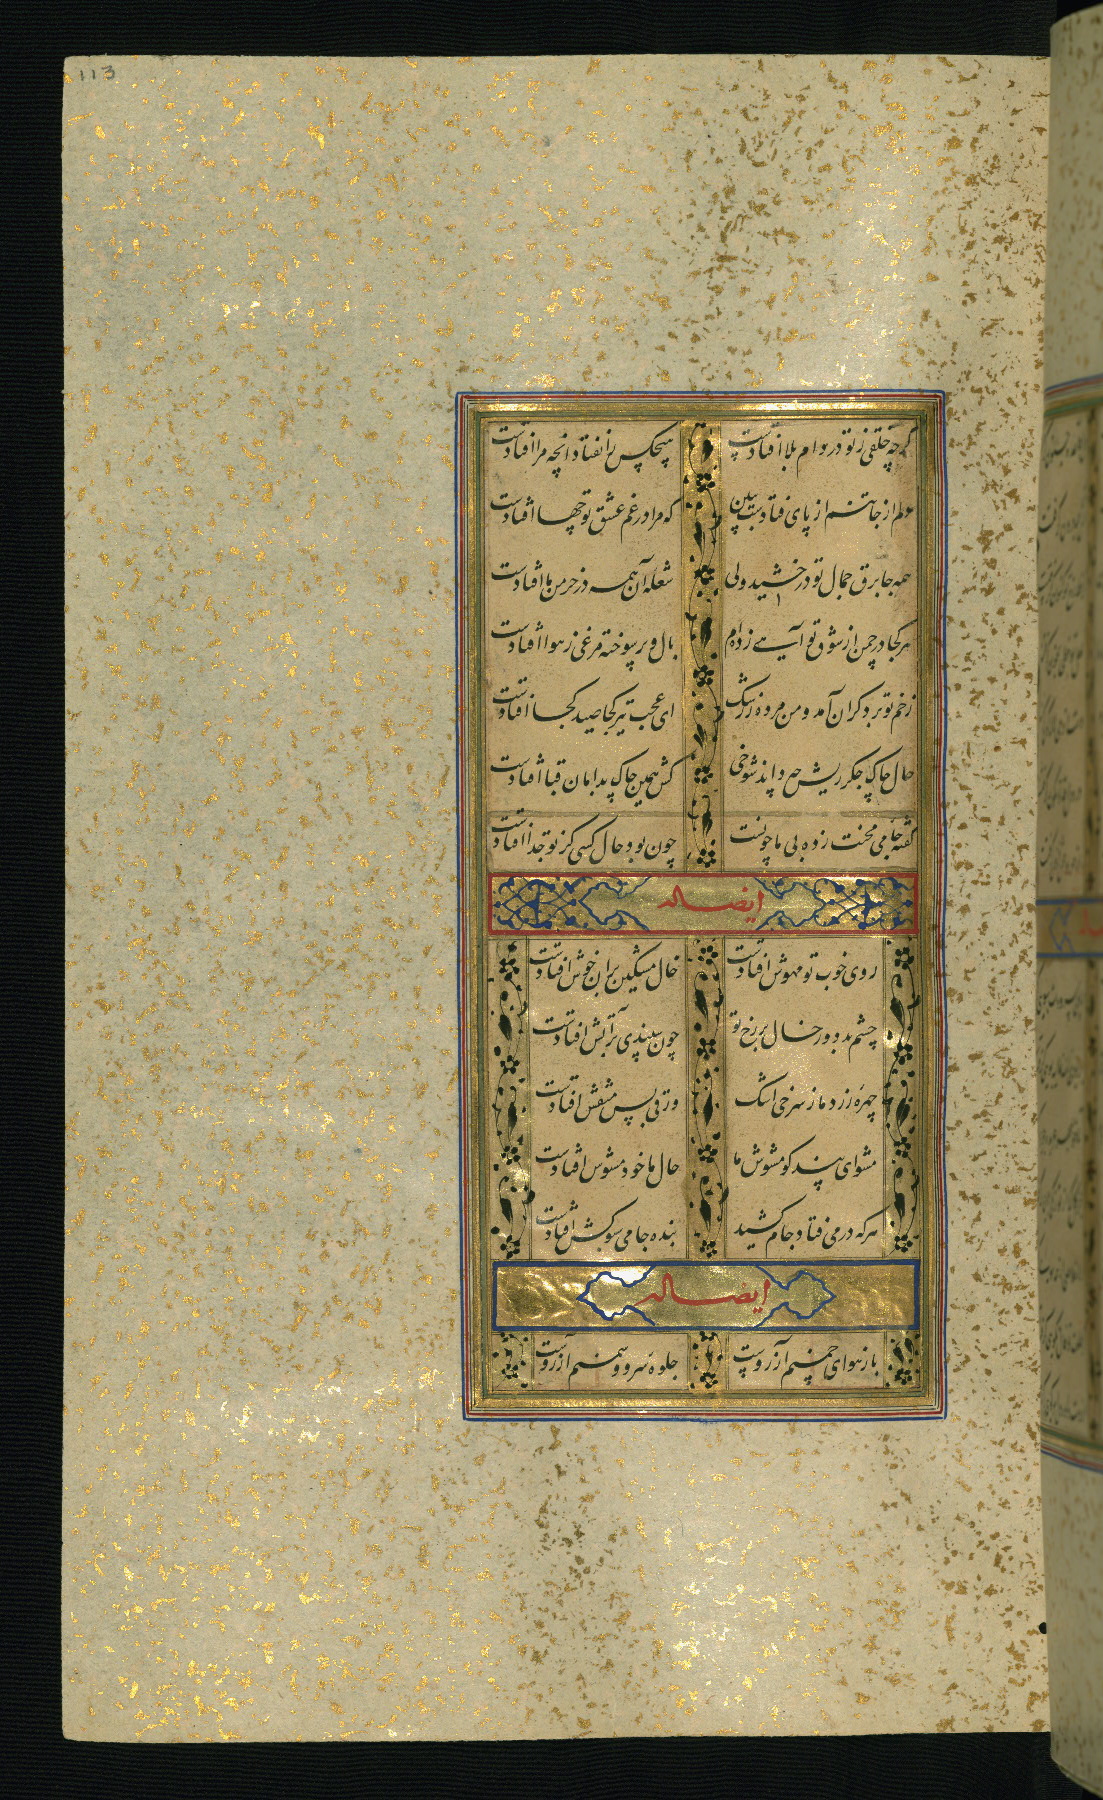 113
گرچه خلقی ز تو در دام بلا افتادست هیچکس را نفتاد آنچه مرا افتادست
دلم از جا تنم از پای فتادست ببین که مرا در غم عشق تو چها افتادست
همه جا برق جمال تو درخشید ولی شعله آن همه در خرمن ما افتادست
هر کجا در چمن از شوق تو آهی زده‌ام بال و پر سوخته مرغی ز هوا افتادست
زخم تو بر دگران آمد و من مرده ز رشک ای عجب تیر کجا صید کجا افتادست
حال چاک جگر ریش چه داند شوخی کش همین چاک بدامان قبا افتادست
گفته جامی محنت زده بی ما چونست چون بود حال کسی کز تو جدا افتادست
ایضا له
روی خوب تو مهوش افتادست خال مشکین بر آن خوش افتادست
چشم بد دور خال بر رخ تو چون سپندی بر آتش افتادست
چهره زرد ما ز سرخی اشک ورقی بس منقش افتادست
مشو ای پندگو مشوش ما حال ما خود مشوش افتادست
هر که در می فتاد جام کشید بنده جامی سبوکش افتادست
ایضا له
باز هوای چمنم آرزوست جلوه سرو و سمنم آرزوست